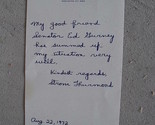 My good friend
Senator Ed Gurney
has summed up
my situation very
well.
Kindest regards,
Strom Thurmond
Aug 22, 1972